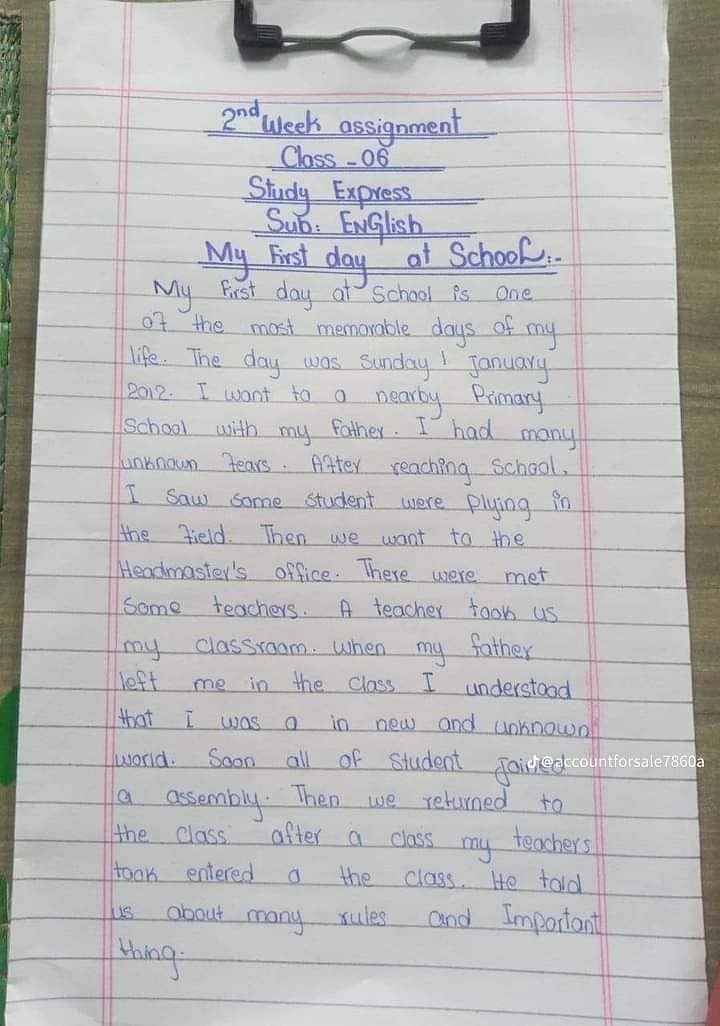 2nd Week assignment
Class - 06
Study Express
Sub: ENGlish
My First day at School:-
My First day at School is One
of the most memorable days of my
life. The day was Sunday 1 January
2012. I want to a nearby Primary
School with my Father. I had many
unknown fears. After reaching School,
I Saw Some student were Plying in
the field. Then we want to the
Headmaster's office. There were met
Some teachers. A teacher took us
my classroom. When my father
left me in the Class I understood
that I was a in new and unknown
world. Soon all of Student joined
@accountforsale7860a
a assembly. Then we returned to
the Class after a class my teachers
took entered a the class. He told
us about many rules and Important
thing.